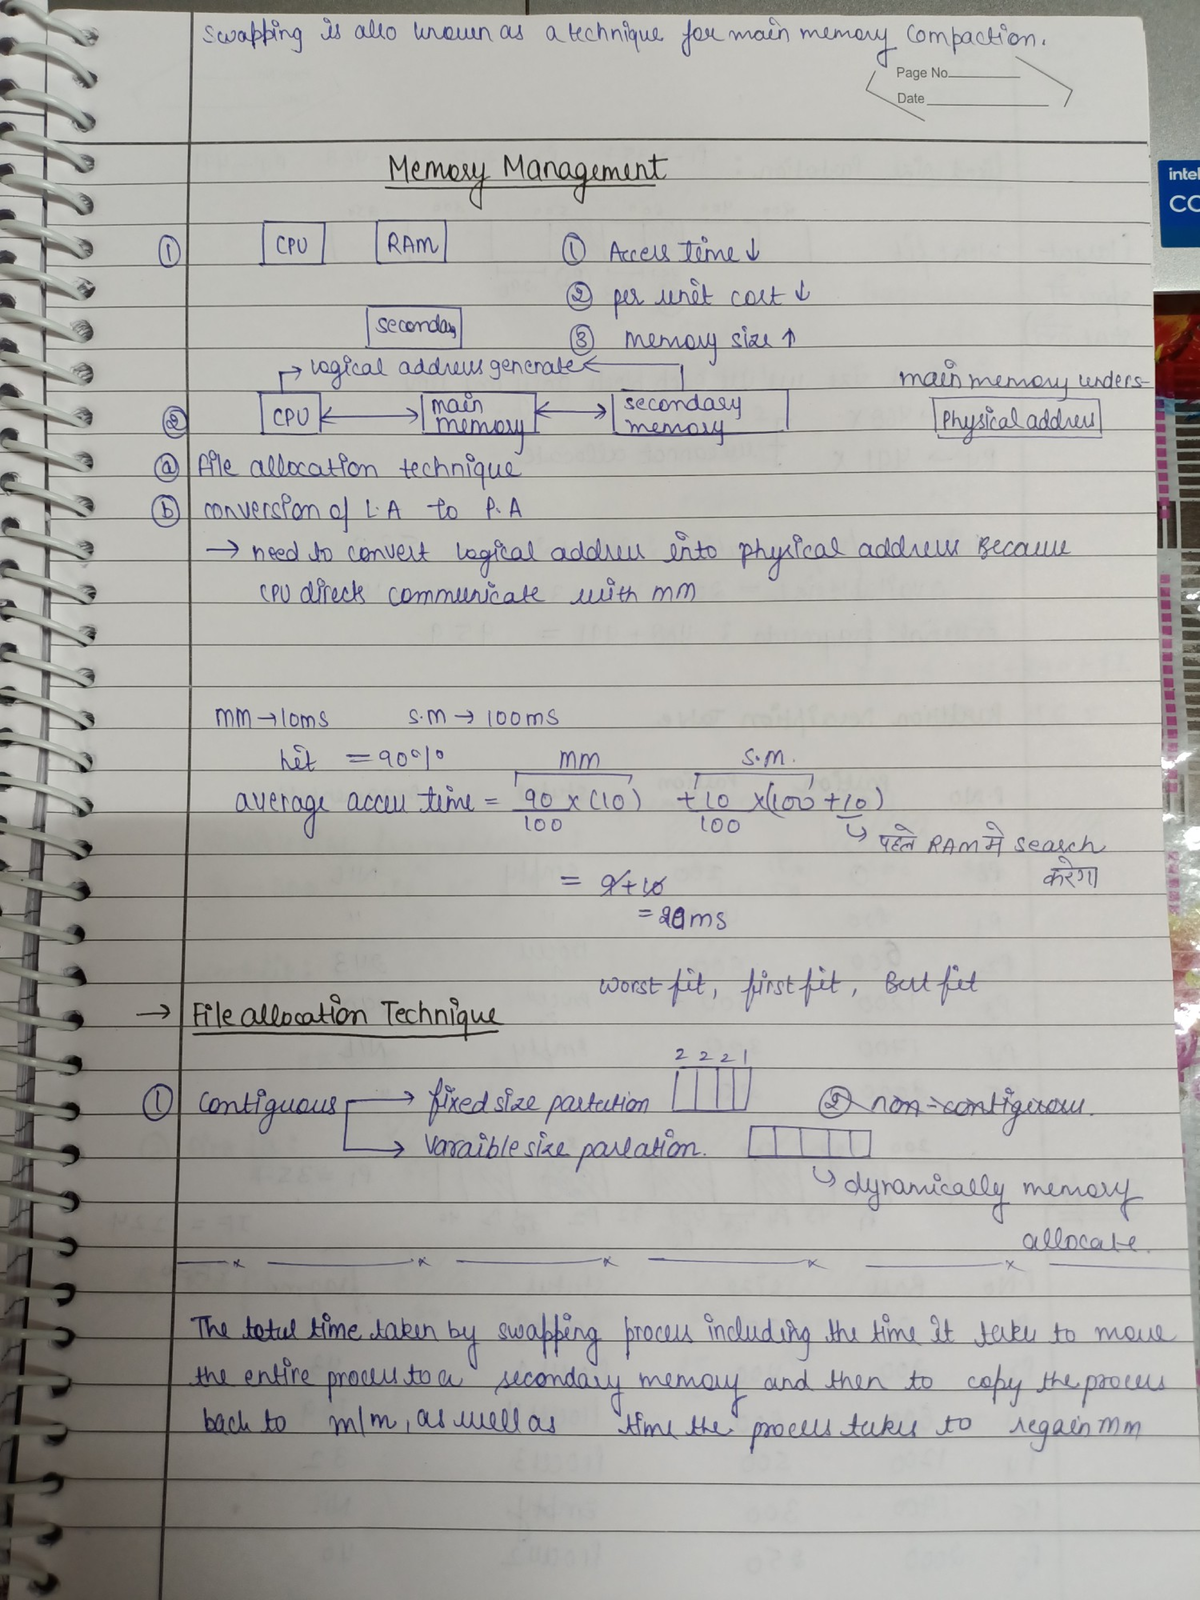 swapping is also known as a technique for main memory compaction.
Page No.
Date
Memory Management
① CPU RAM ① Access time ↓
② per unit cost ↓
seconday ③ memory size ↑
logical address generate
main memory unders-
② CPU main memory secondary memory Physical address
ⓐ File allocation technique
ⓑ conversion of L.A to P.A
→ need to convert logical address into physical address Because
CPU directs communicate with mm
mm → 10ms s.m → 100ms
hit = 90% mm s.m.
average access time = 90/100 x (10) + 10/100 x (100 + 10)
पहले RAM मे search
करेगा
= 9 + 10
= 20ms
worst fit, first fit, Best fit
→ File allocation Technique
2 2 2 1
① contiguous → fixed size partation ② non-contiguous.
→ varaible size partation.
↳ dynamically memory
allocate.
The total time taken by swapping process including the time it takes to move
the entire process to a secondary memory and then to copy the process
back to m/m, as well as time the process takes to regain mm
intel
CO